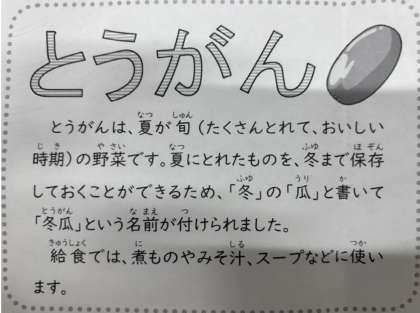 とうがん
とうがんは、夏が旬（たくさんとれて、おいしい
時期）の野菜です。夏にとれたものを、冬まで保存
しておくことができるため、「冬」の「瓜」と書いて
「冬瓜」という名前が付けられました。
給食では、煮ものやみそ汁、スープなどに使い
ます。